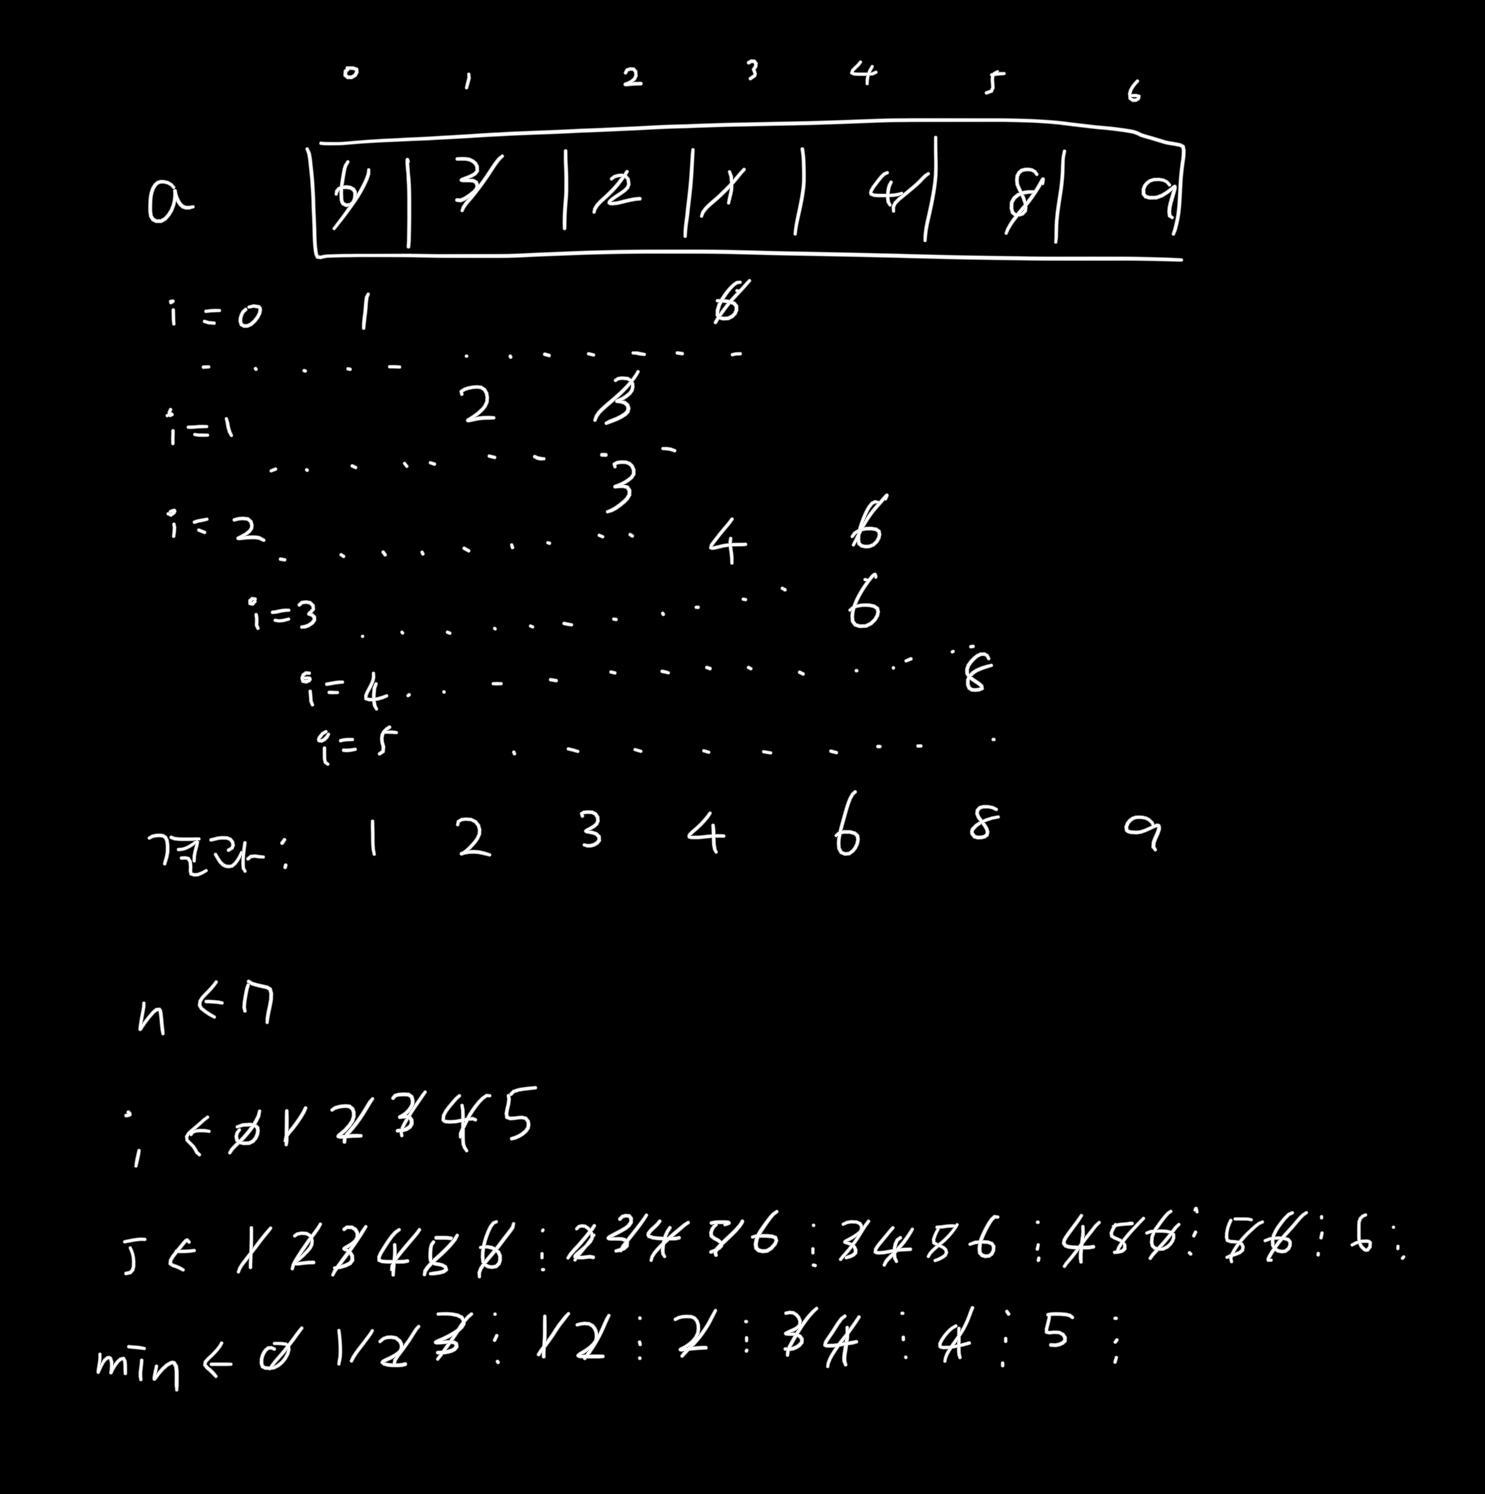 0 1 2 3 4 5 6
a 6 3 2 1 4 8 9
i = 0 1 6
i = 1 2 3
3
i = 2 4 6
i = 3 6
i = 4 8
i = 5
결과 : 1 2 3 4 6 8 9
n ← 7
i ← 0 1 2 3 4 5
J ← 1 2 3 4 5 6 ⋮ 2 3 4 5 6 ⋮ 3 4 5 6 ⋮ 4 5 6 ⋮ 5 6 ⋮ 6 ⋮
min ← 0 1 2 3 ⋮ 1 2 ⋮ 2 ⋮ 3 4 ⋮ 4 ⋮ 5 ⋮